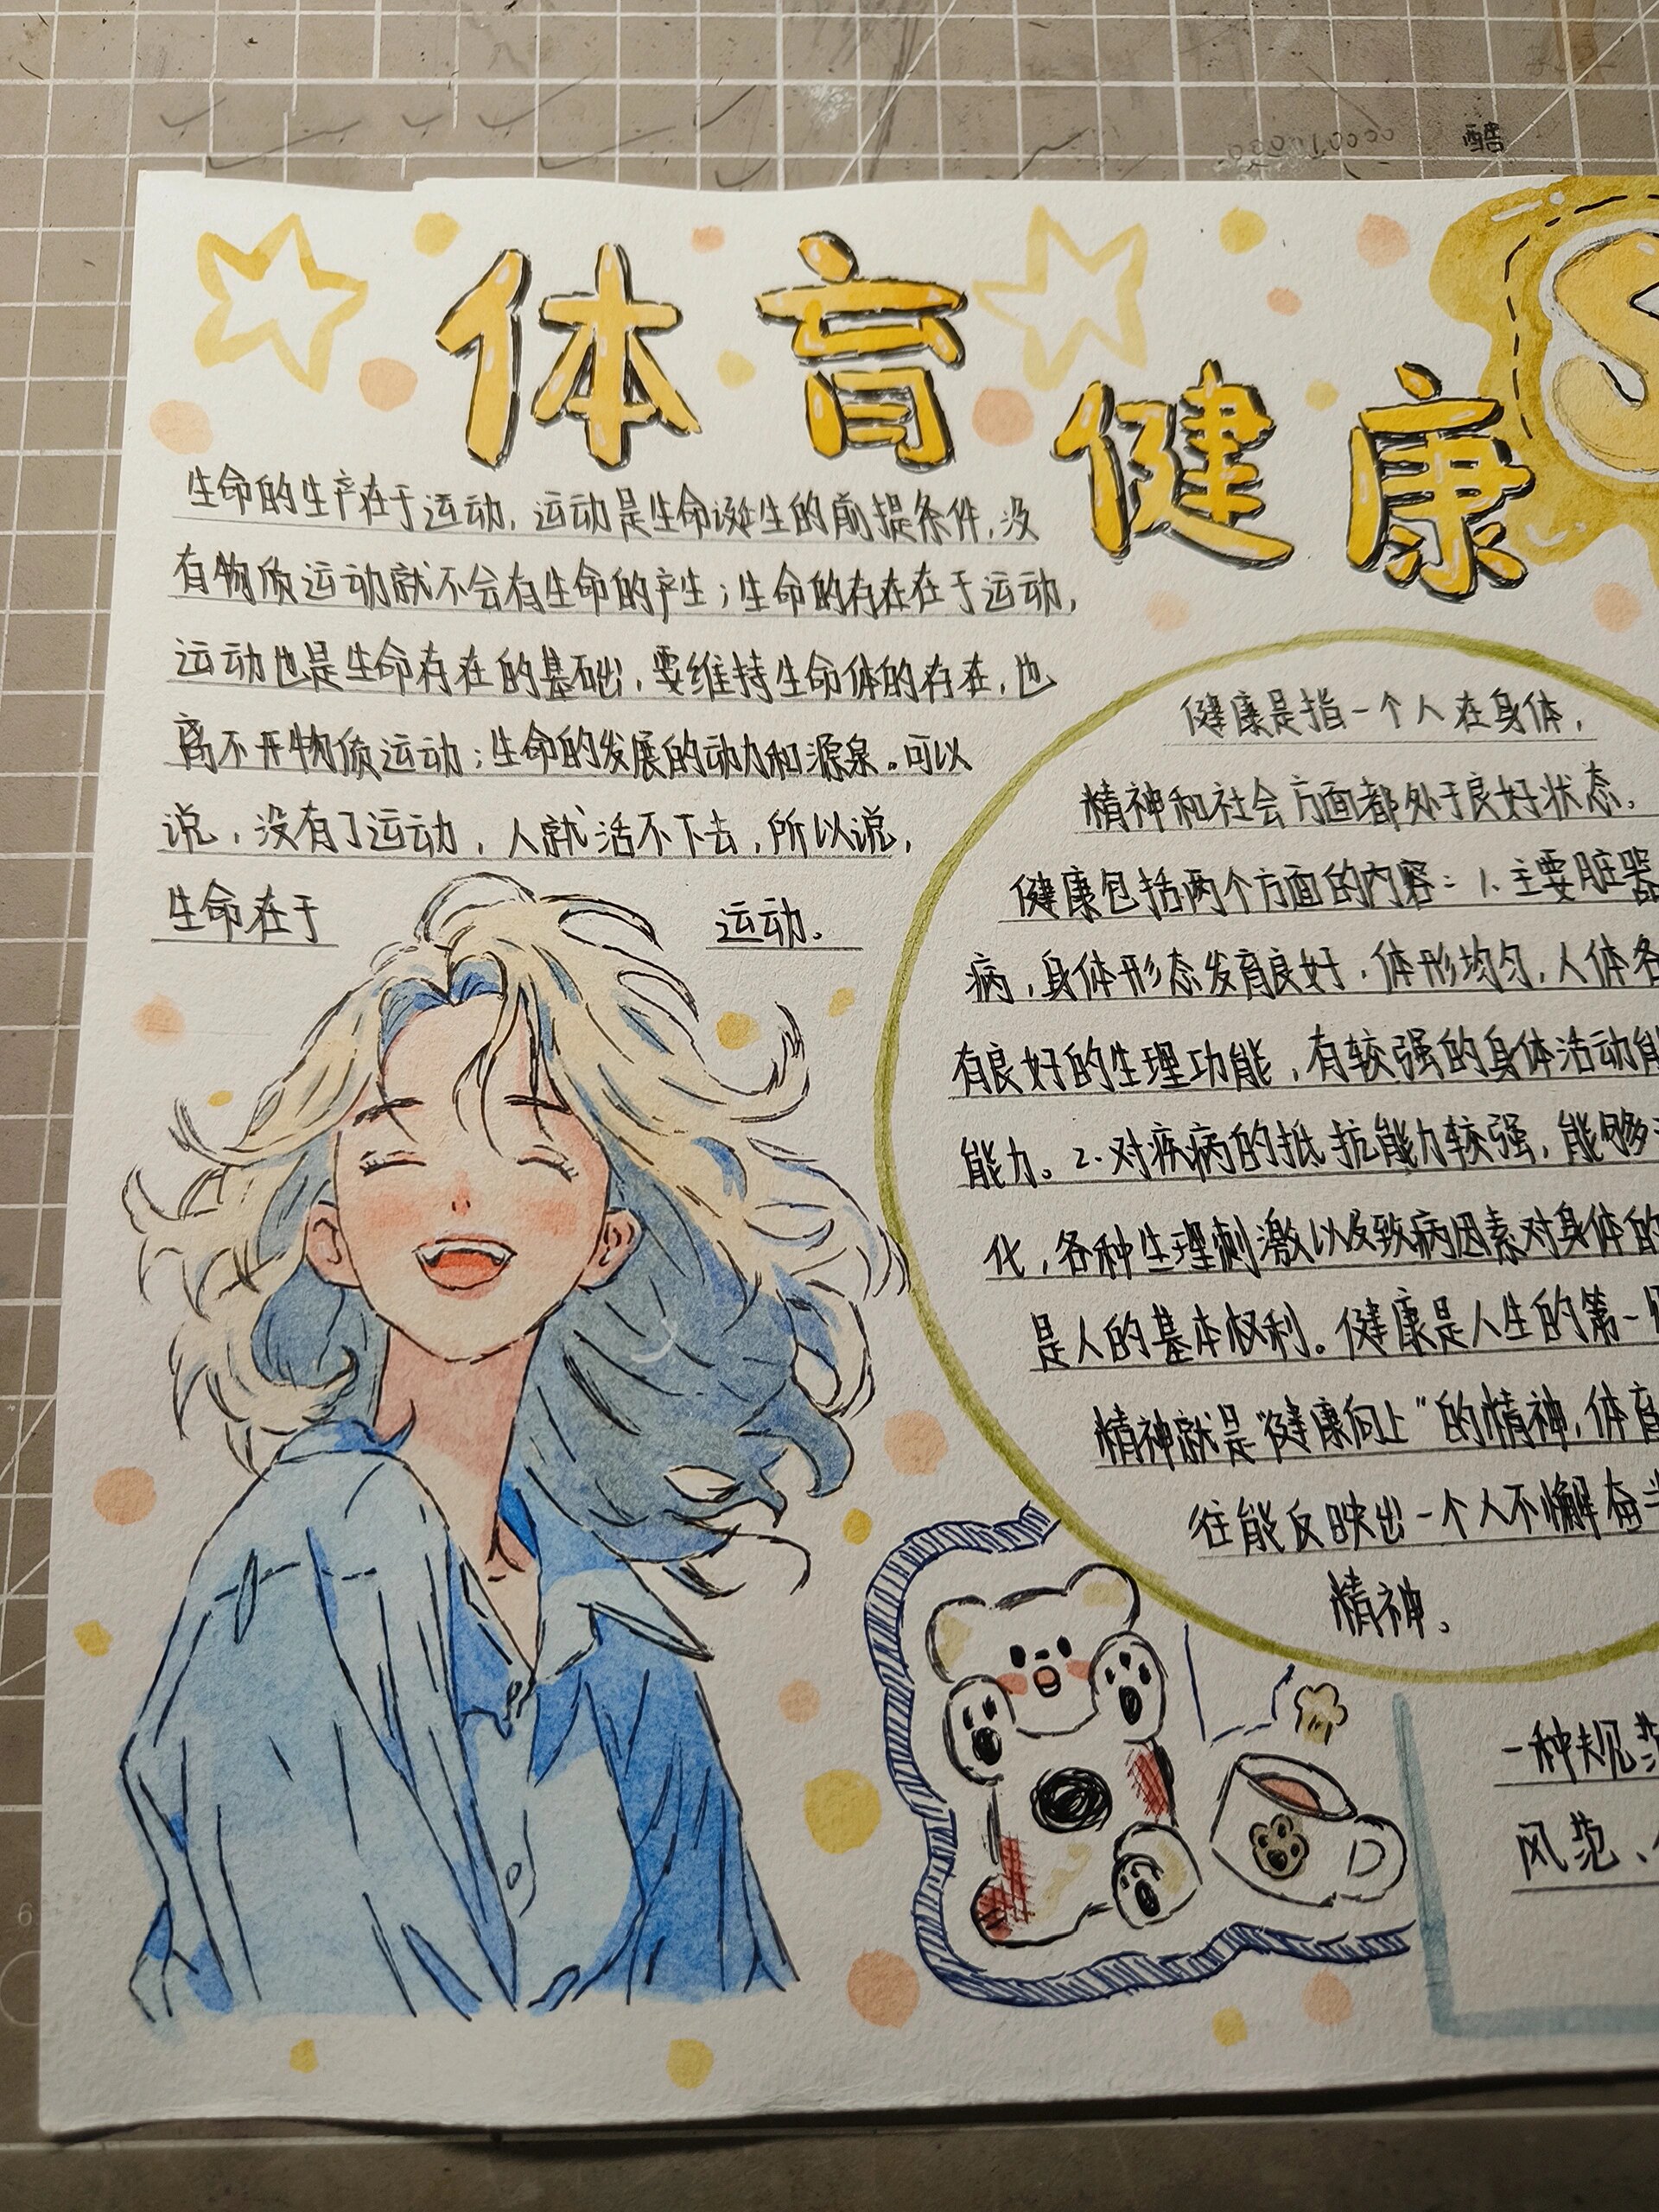 酷
体育
健康
S
生命的生产在于运动，运动是生命诞生的前提条件，没
有物质运动就不会有生命的产生；生命的存在在于运动，
运动也是生命存在的基础，要维持生命体的存在，也
离不开物质运动；生命的发展的动力和源泉。可以
说，没有了运动，人就活不下去，所以说，
生命在于 运动。
健康是指一个人在身体，
精神和社会方面都处于良好状态。
健康包括两个方面的内容：1、主要脏器
病，身体形态发育良好，体形均匀，人体各
有良好的生理功能，有较强的身体活动能
能力。2.对疾病的抵抗能力较强，能够
化，各种生理刺激以及致病因素对身体的
是人的基本权利。健康是人生的第一
精神就是“健康向上”的精神，体育
往能反映出一个人不懈奋
精神。
一种规范
风范、
6